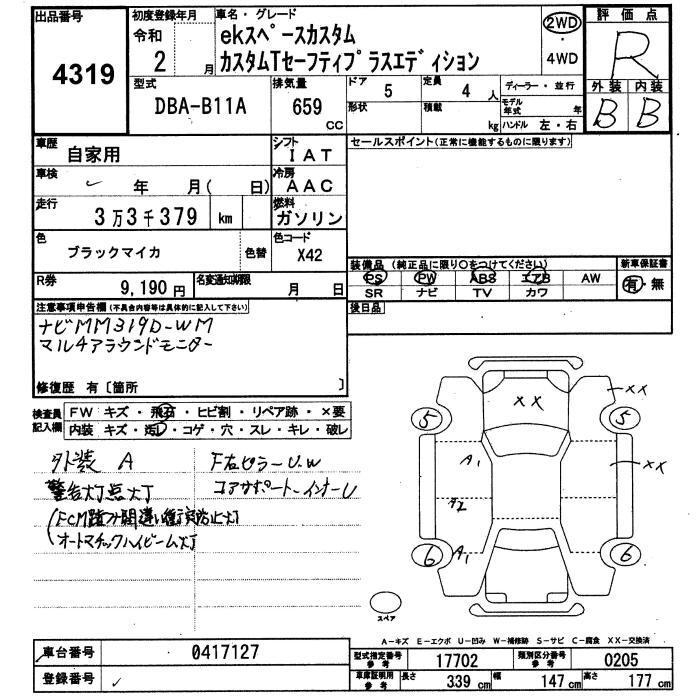 出品番号 4319
初度登録年月 令和 2 月
車名・グレード
ekスペースカスタム
カスタムTセーフティプラスエディション
2WD ・ 4WD
評価点 R
外装 B 内装 B
型式 DBA-B11A
排気量 659 CC
ドア 5
定員 4 人
形状
積載 kg
ディーラー・並行
モデル年式 年
ハンドル 左・右
車歴 自家用
シフト IAT
車検 年 月( 日)
冷房 AAC
走行 3万3千379 km
燃料 ガソリン
色 ブラックマイカ 色替
色コード X42
R券 9,190円
名変通知期限 月 日
セールスポイント(正常に機能するものに限ります)
装備品(純正品に限り○をつけてください)
PS PW ABS エアB AW
SR ナビ TV カワ
新車保証書
有・無
後日品
注意事項申告欄(不具合内容等は具体的に記入して下さい)
ナビMM319D-WM
マルチアラウンドモニター
修復歴 有〔箇所 〕
検査員記入欄
FW キズ・飛石・ヒビ割・リペア跡・×要
内装 キズ・汚レ・コゲ・穴・スレ・キレ・破レ
外装 A
警告灯点灯
オートマチックハイビーム灯
F右ピラーU.W
コアサポートインナーU
XX
XX
XX
5
5
A1
A2
A1
6
6
スペア
A-キズ E-エクボ U-凹み W-補修跡 S-サビ C-腐食 XX-交換済
車台番号 0417127
登録番号
型式指定番号 参考 17702
類別区分番号 参考 0205
車庫証明用 参考 長さ 339 cm 幅 147 cm 高さ 177 cm